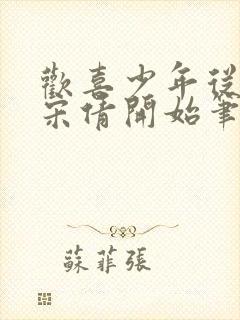 歡喜少年從
宋倩開始筆
蘇菲張